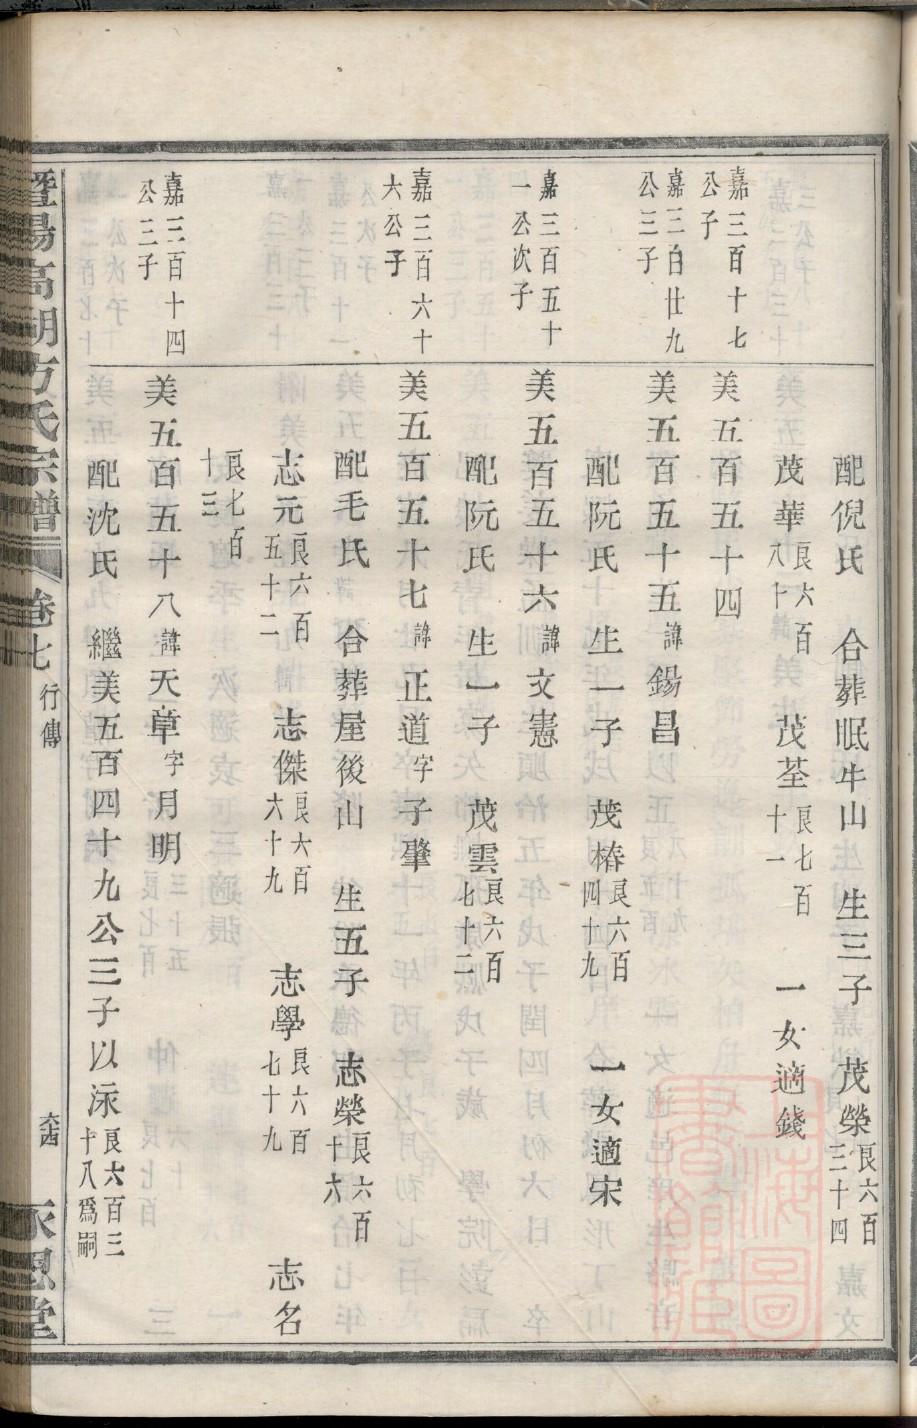 配倪氏　合葬眠牛山　生三子　茂榮良六百三十四
茂華良六百八十　茂荃良七百十一　一女適錢
嘉三百十七公子　美五百五十四
嘉三百廿九公三子　美五百五十五諱錫昌
配阮氏　生一子　茂椿良六百四十九　一女適宋
嘉三百五十一公次子　美五百五十六諱文憲
配阮氏　生一子　茂雲良六百七十二
嘉三百六十六公子　美五百五十七諱正道字子肇
配毛氏　合葬屋後山　生五子　志榮良六百十六
志元良六百五十二　志傑良六百六十九　志學良六百七十九　志名
良七百十三
嘉三百十四公三子　美五百五十八諱天章字月明
配沈氏　繼美五百四十九公三子以泳良六百三十八爲嗣
暨陽高湖方氏宗譜　卷七　行傳　永恩堂